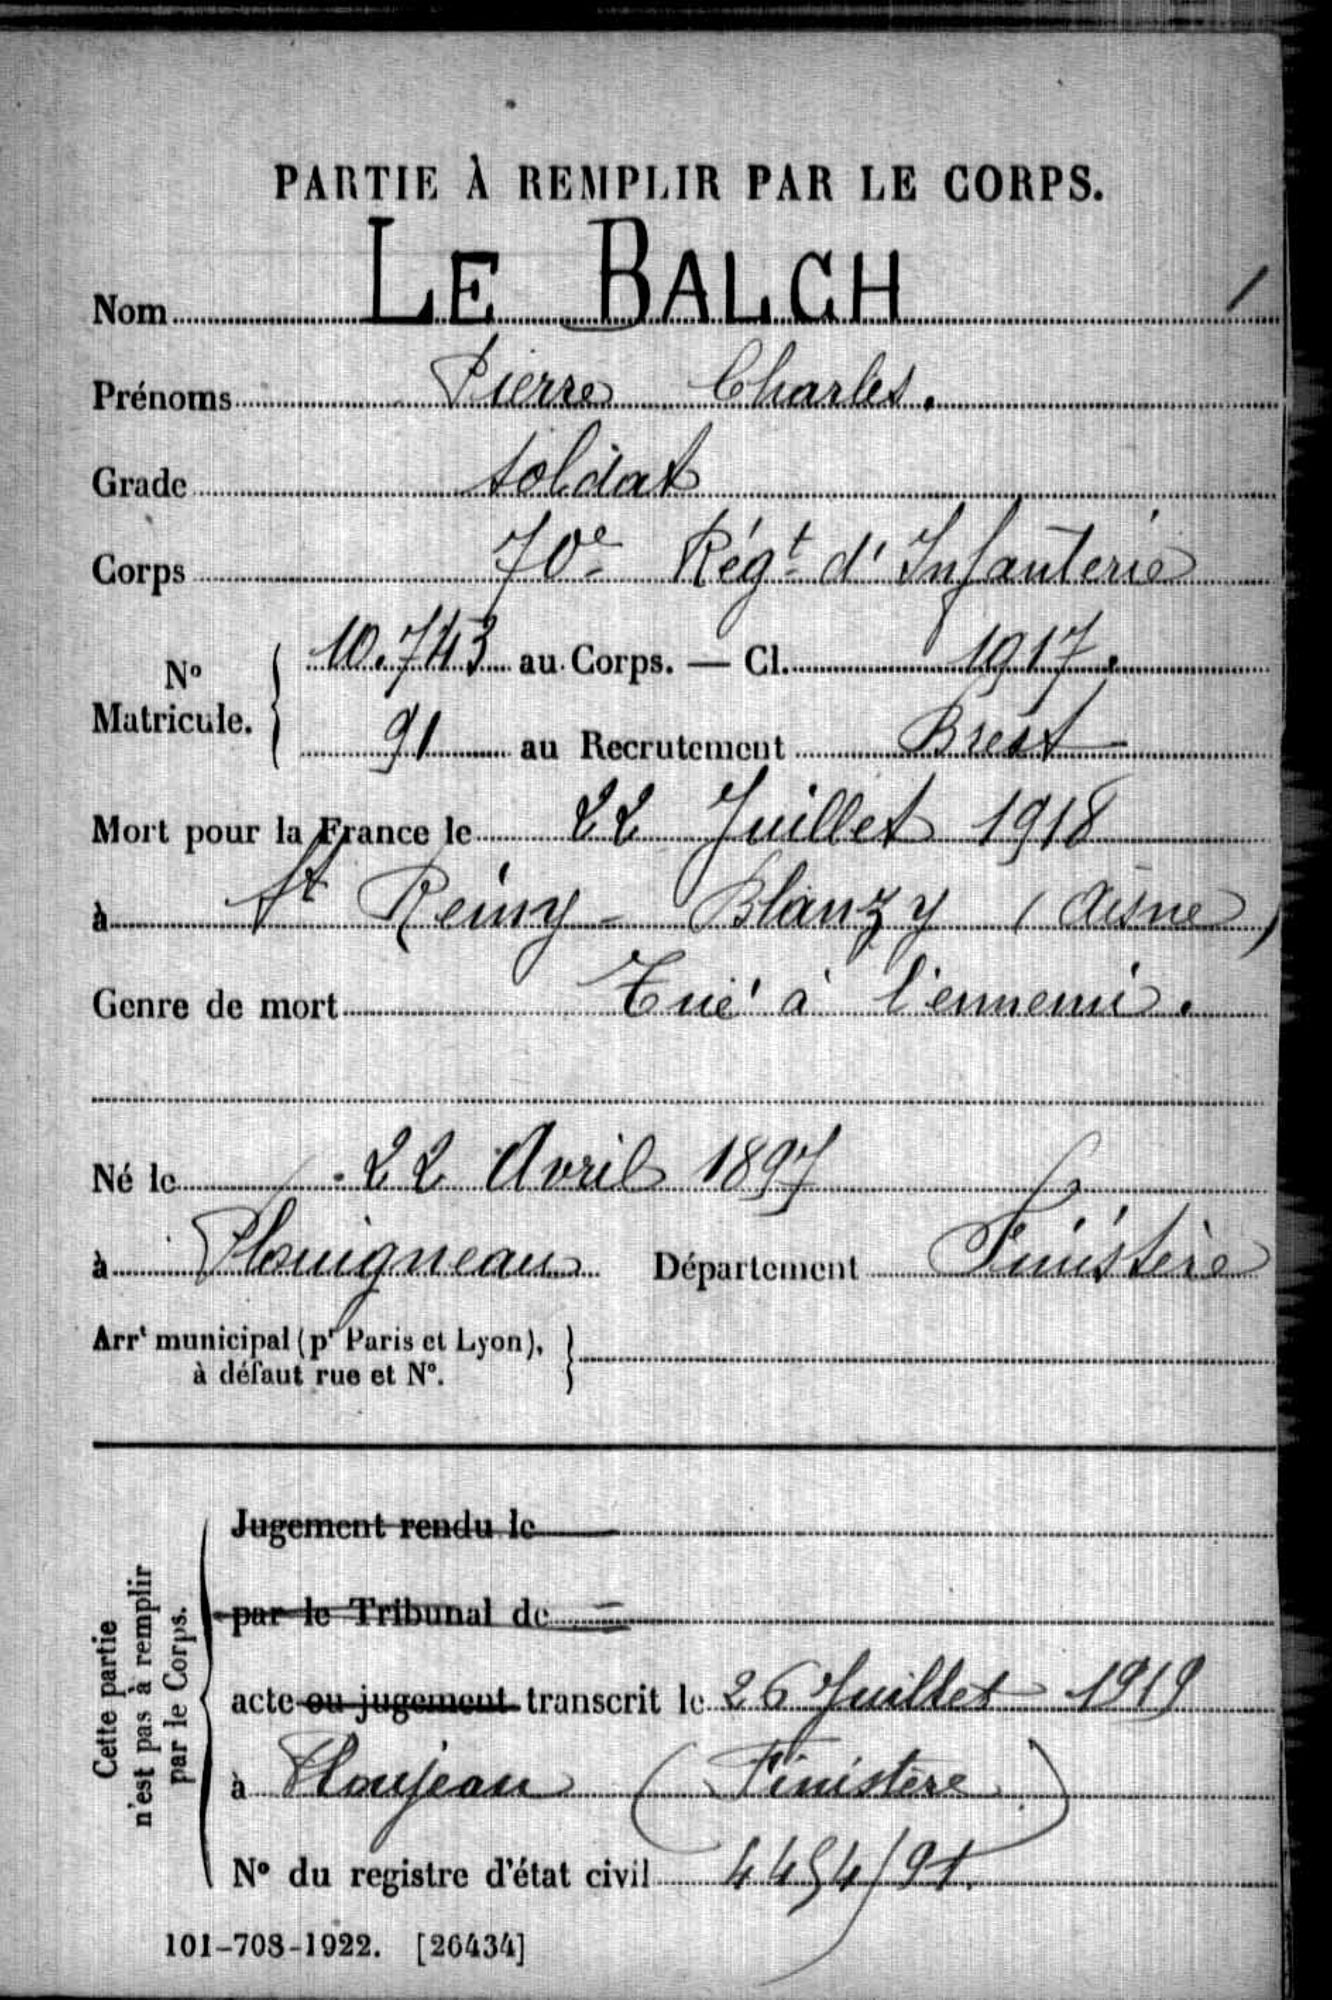 PARTIE À REMPLIR PAR LE CORPS.
Nom LE BALCH
Prénoms Pierre Charles.
Grade soldat
Corps 70e Régt d'Infanterie
No Matricule. 10.743 au Corps. — Cl. 1917.
91 au Recrutement Brest
Mort pour la France le 22 Juillet 1918
à St Rémy-Blanzy (Aisne)
Genre de mort Tué à l'ennemi.
Né le 22 Avril 1897
à Plouigneau Département Finistère
Arrt municipal (pr Paris et Lyon),
à défaut rue et No.
Cette partie
n'est pas à remplir
par le Corps.
Jugement rendu le
par le Tribunal de
acte ou jugement transcrit le 26 Juillet 1919
à Ploujean (Finistère)
No du registre d'état civil 4454/91.
101-708-1922. [26434]